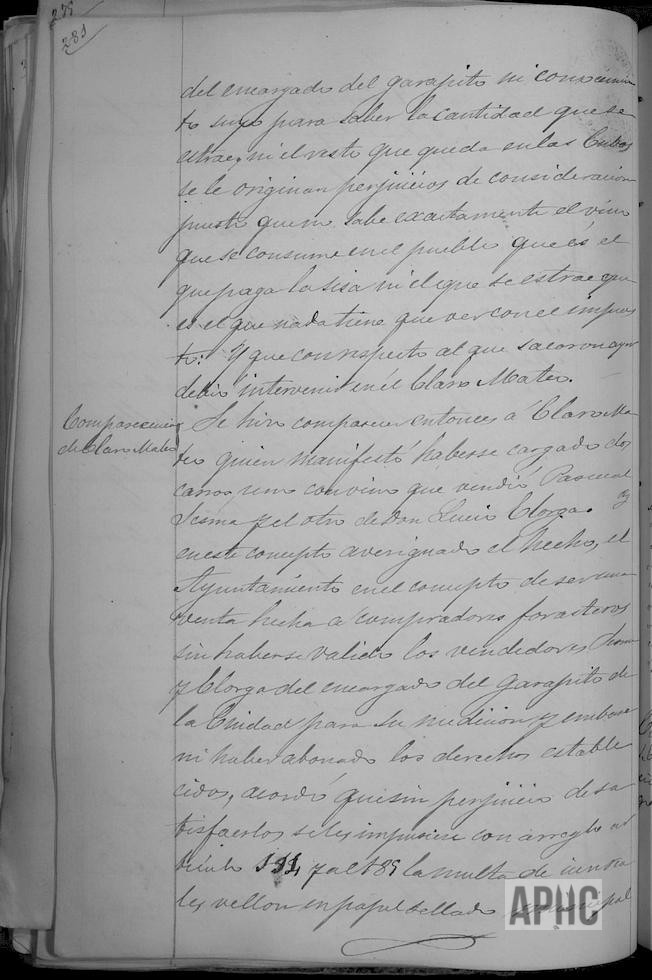 275
281
del encargado del garapito ni conocimien
to suyo para saber la cantidad que se
estrae, ni el resto que queda en las Cubas
se le originan perjuicios de consideracion
puesto que no sabe exactamente el vino
que se consume en el pueblo que es el
que paga la sisa ni el que se estrae que
es el que nada tiene que ver con el impues
to: Y que con respecto al que sacaron ayer
debio intervenir en el Claro Mateo.
Comparecencia
de Claro Mateo
Se hizo comparecer entonces á Claro Ma
teo quien manifestó haberse cargado dos
carros uno con vino que vendió Pascual
Sesma y el otro de Don Lucio Clorga. y
en este concepto averiguado el hecho, el
Ayuntamiento en el concepto de ser una
venta hecha a compradores forasteros
sin haberse valido los vendedores Sesma
y Clorga del encargado del garapito de
la Ciudad para su medicion y embase
ni haber abonado los derechos estable
cidos, acordó que sin perjuicio de sa
tisfacerlos se les impusiese con arreglo al ar
ticulo 191 y al 185 la multa de cien rea
les vellon en papel sellado municipal
APHC